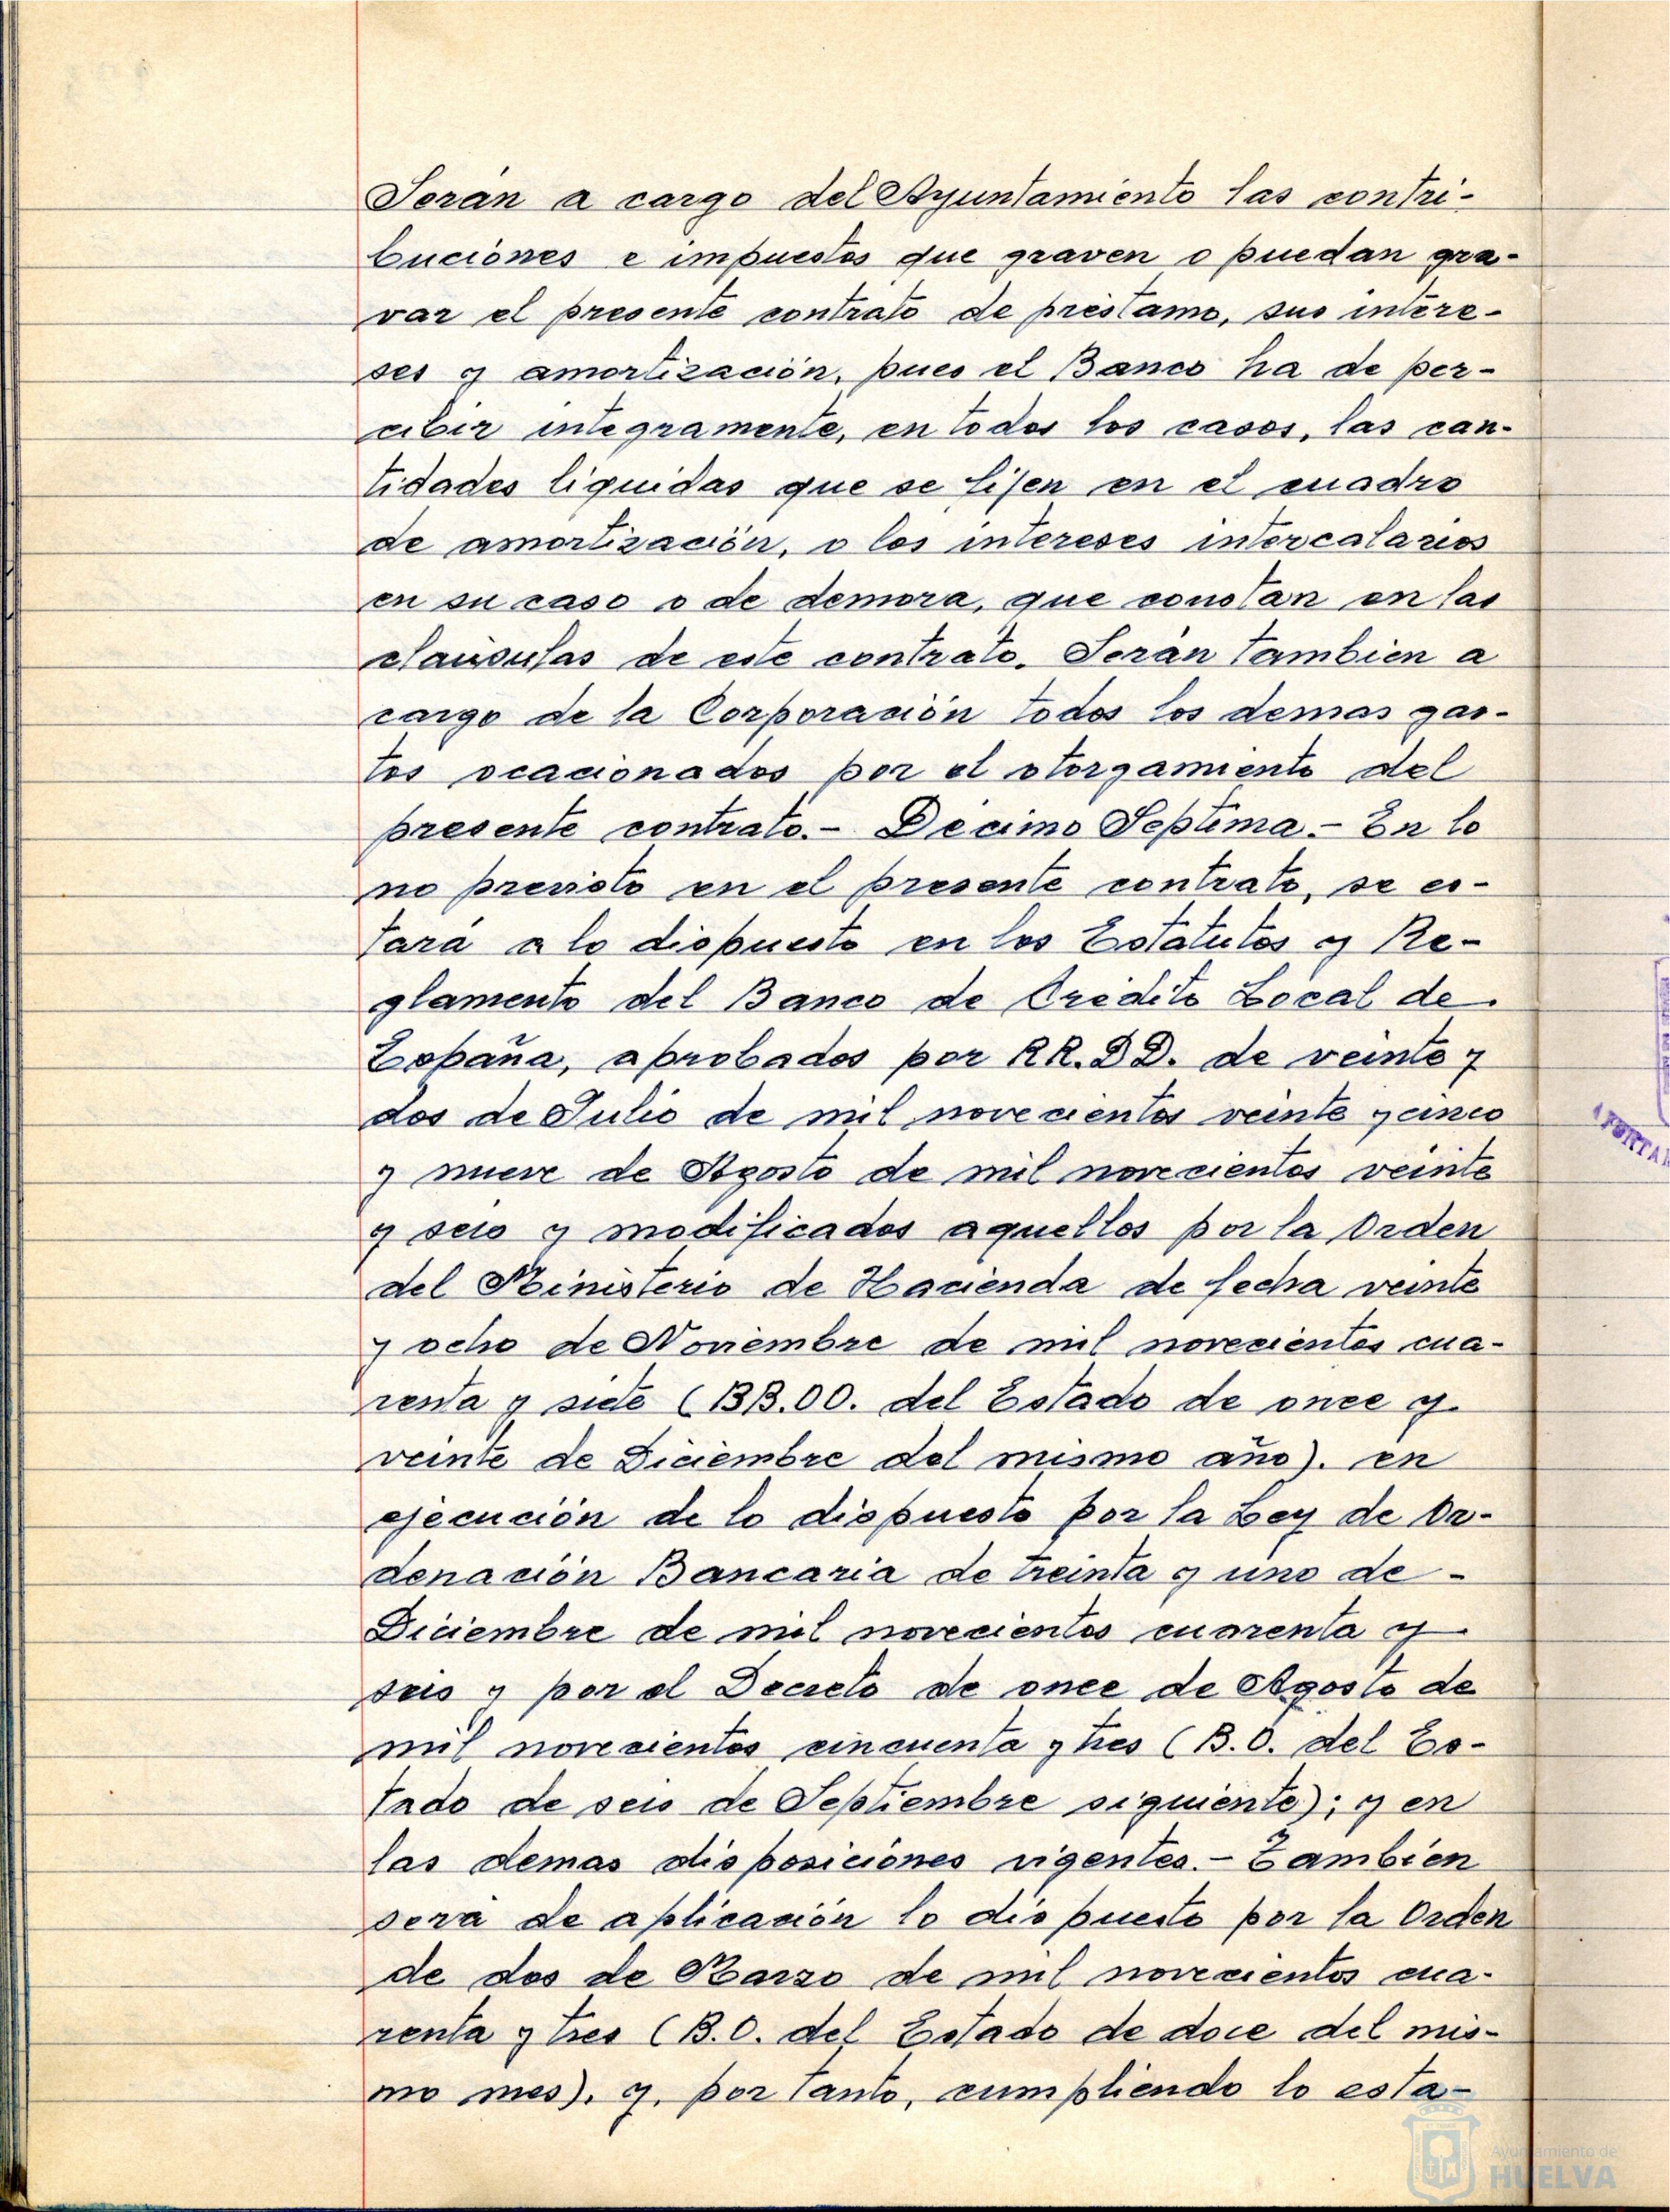 Serán a cargo del Ayuntamiento las contri-
buciones e impuestos que graven o puedan gra-
var el presente contrato de préstamo, sus intere-
ses y amortización, pues el Banco ha de per-
cibir integramente, en todos los casos, las can-
tidades liquidas que se fijen en el cuadro
de amortización, o los intereses intercalarios
en su caso o de demora, que constan en las
claúsulas de este contrato. Serán tambien a
cargo de la Corporación todos los demas gas-
tos ocacionados por el otorgamiento del
presente contrato.- Décimo Septima.- En lo
no previsto en el presente contrato, se es-
tará a lo dispuesto en los Estatutos y Re-
glamento del Banco de Crédito Local de
España, aprobados por RR.DD. de veinte y
dos de Julio de mil novecientos veinte y cinco
y nueve de Agosto de mil novecientos veinte
y seis y modificados aquellos por la Orden
del Ministerio de Hacienda de fecha veinte
y ocho de Noviembre de mil novecientos cua-
renta y siete (BB.OO. del Estado de once y
veinte de Diciembre del mismo año). en
ejecución de lo dispuesto por la Ley de Or-
denación Bancaria de treinta y uno de -
Diciembre de mil novecientos cuarenta y
seis y por el Decreto de once de Agosto de
mil novecientos cincuenta y tres (B.O. del Es-
tado de seis de Septiembre siguiente); y en
las demas disposiciónes vigentes.- También
será de aplicación lo dispuesto por la Orden
de dos de Marzo de mil novecientos cua-
renta y tres (B.O. del Estado de doce del mis-
mo mes). y, por tanto, cumpliendo lo esta-
Ayuntamiento de
HUELVA